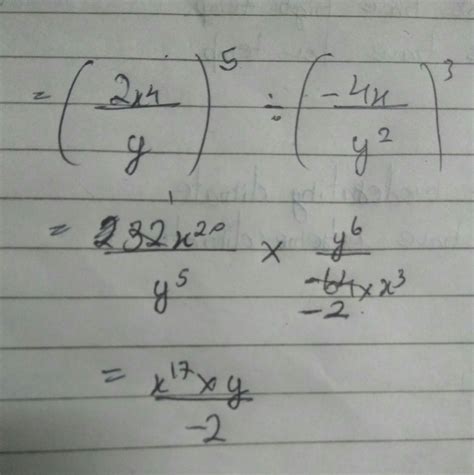 = (2x4/y)^5 ÷ (-4x/y^2)^3
= 32x^20/y^5 × y^6/-64 × x^3
1
-2
= x^17 × y/-2